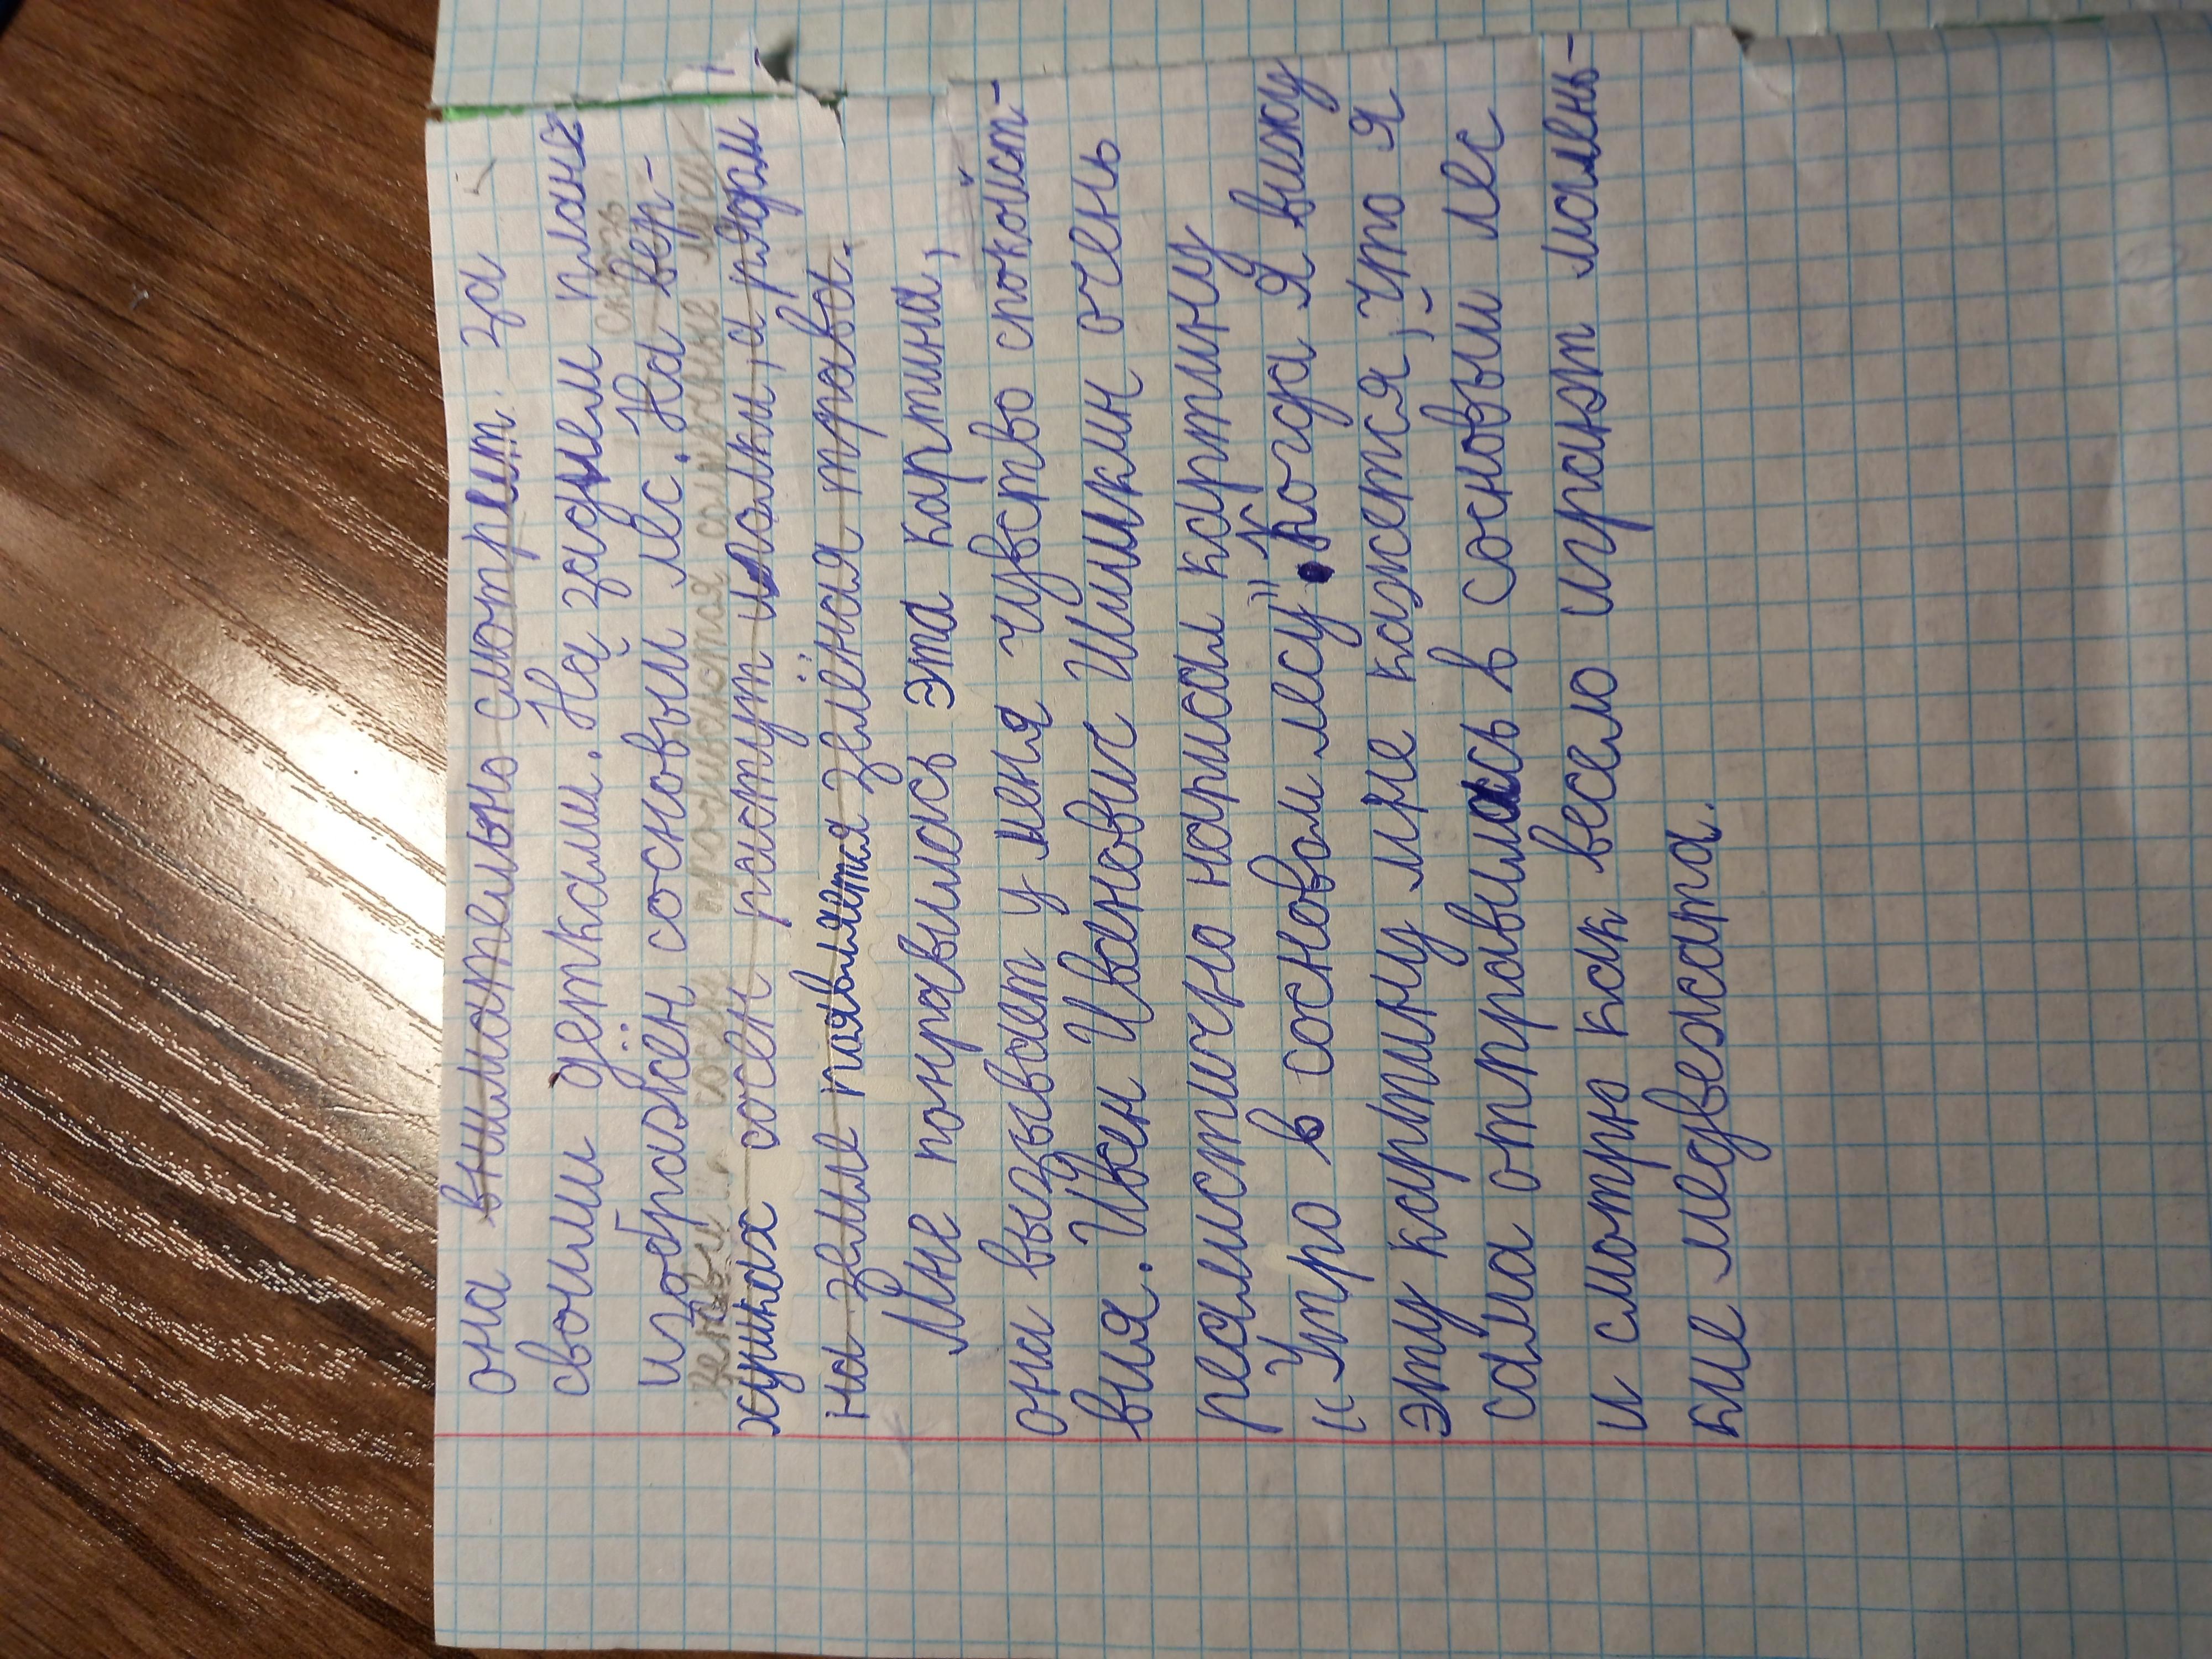 она внимательно смотрет за
своими детками. На заднем плане
изображён сосновый лес. На вер-
сквозь
ветви сосен прочиваются солнечные лучи
хушках сосен растут иголки, а рядом
на земле паявляется зелёная трава.
Мне понравилась эта картина,
она вызывает у меня чувство спокойст-
вия. Иван Иванович Шишкин очень
реалистично написал картину
"Утро в сосновом лесу". Когда я вижу
эту картину мне кажется, что я
сама отправилась в сосновый лес
и смотрю как весело играют малень-
кие медвежата.